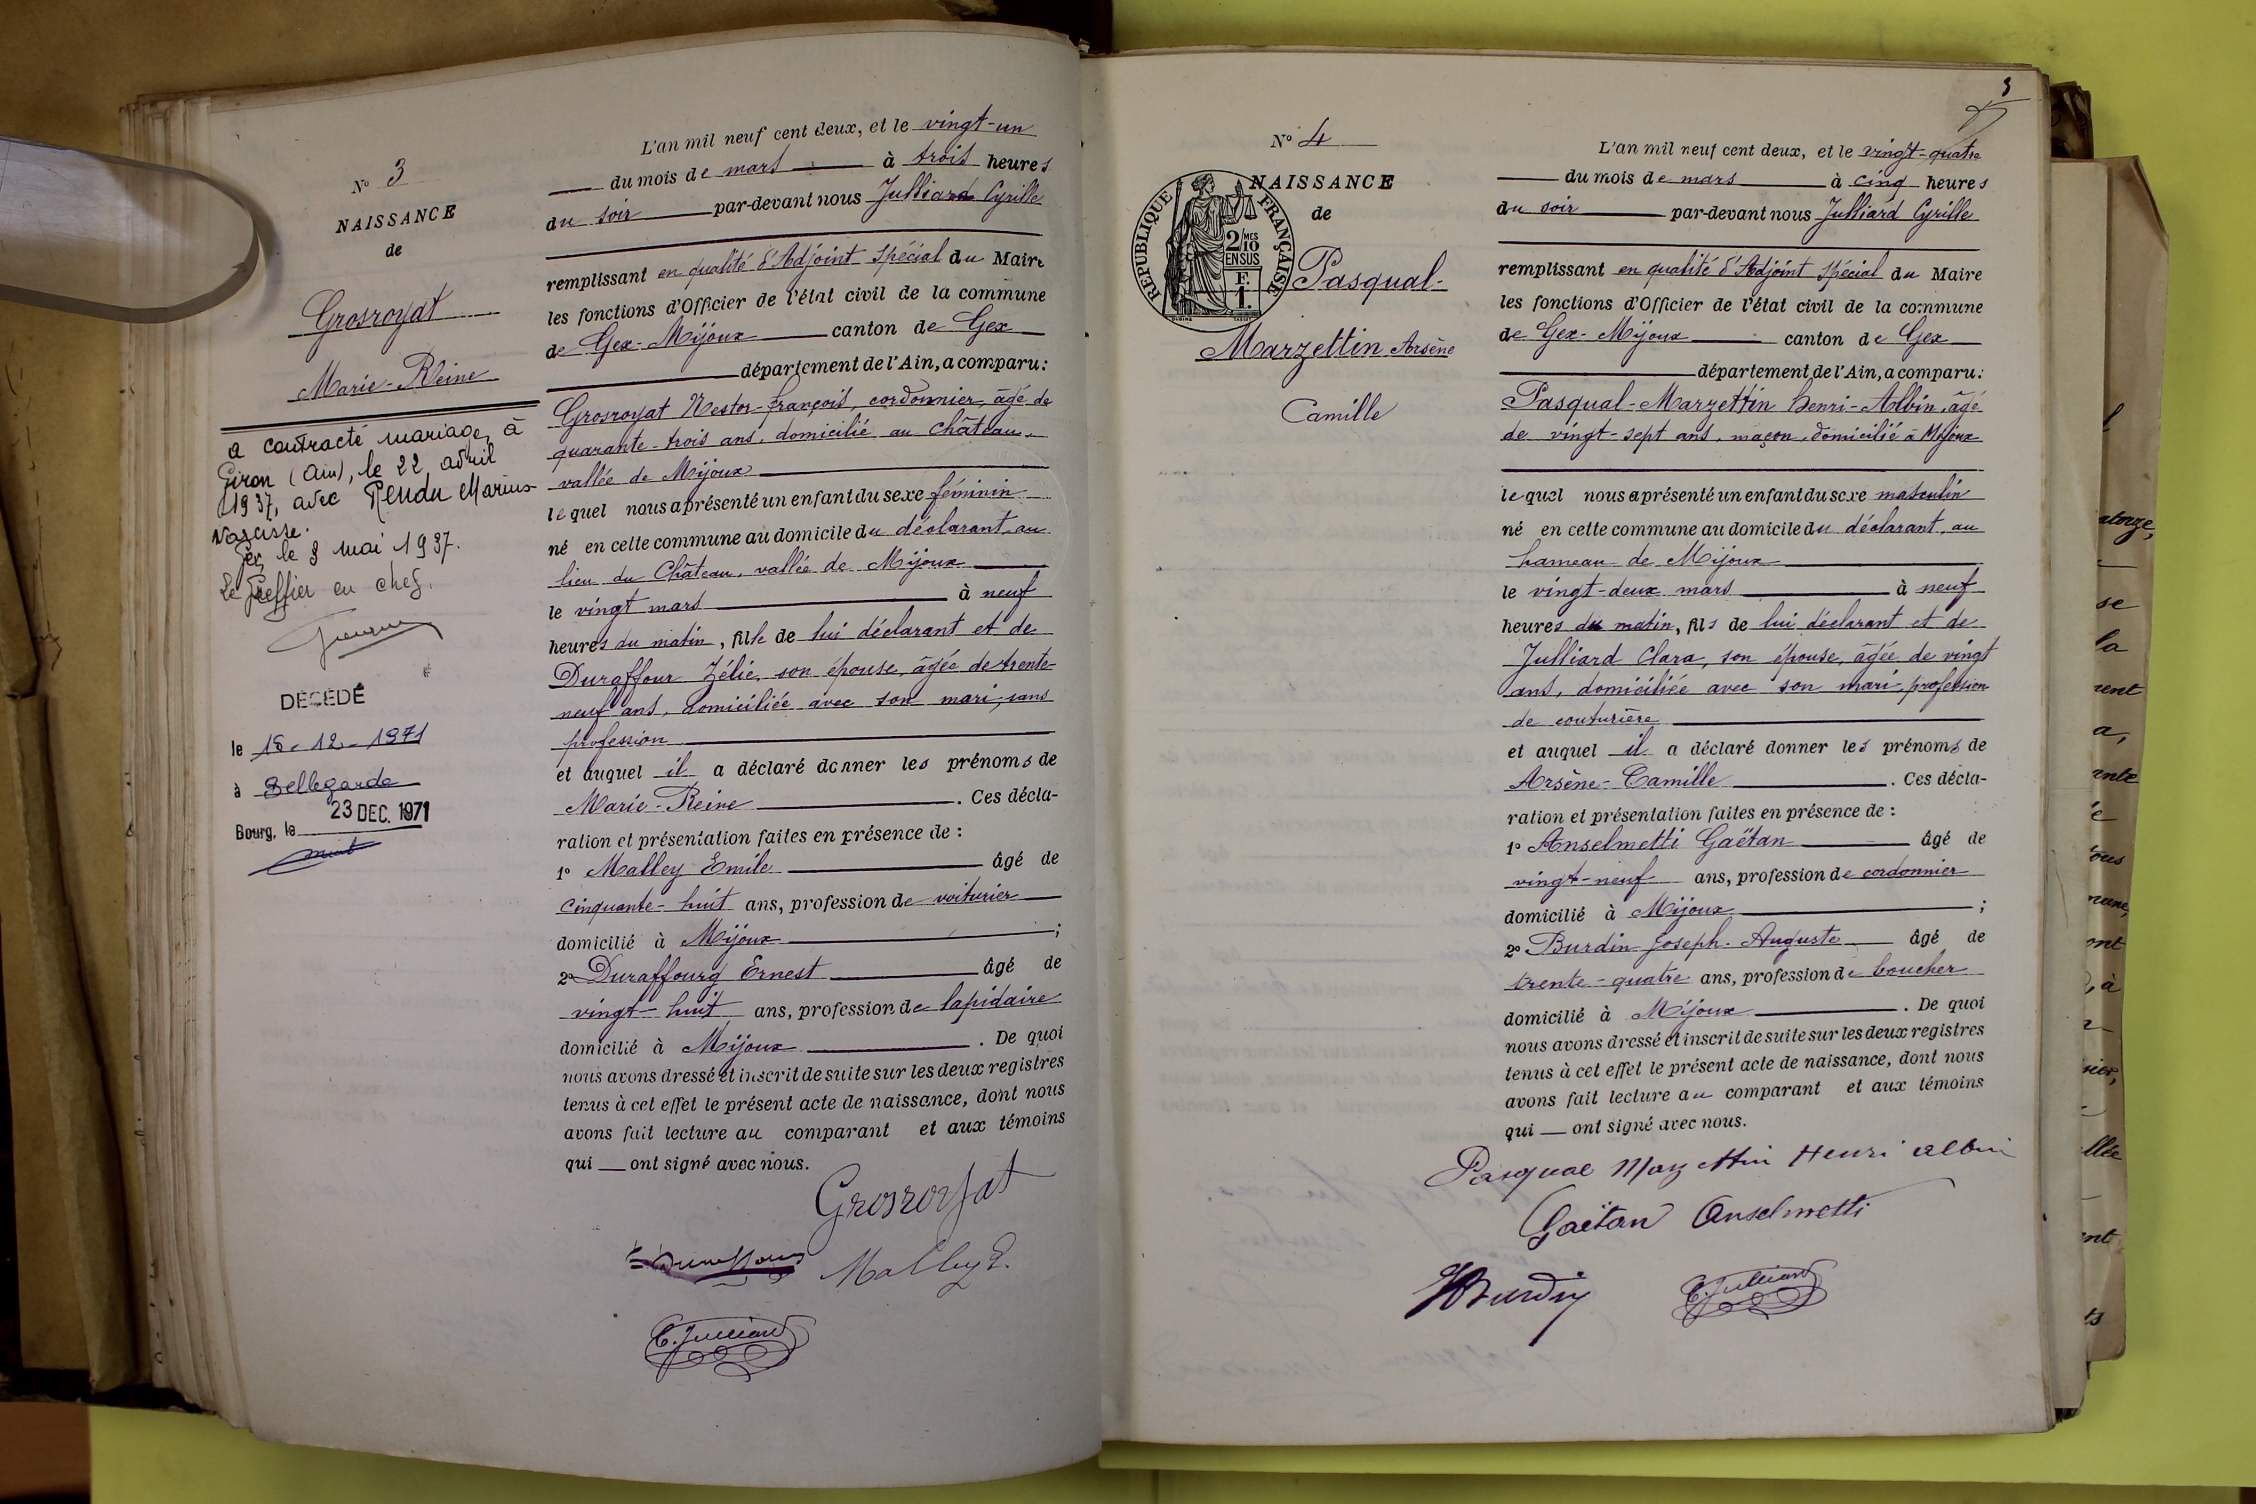 N° 3
NAISSANCE
de
Grosroyat
Marie-Reine
a contracté mariage à
Giron (Ain), le 22 avril
1937, avec Pendu Marius
Narcisse.
Gex, le 8 mai 1937.
Le Greffier en chef.
DÉCÉDÉ
le 18-12-1971
à Bellegarde
Bourg, le 23 DEC. 1971
L'an mil neuf cent deux, et le vingt-un
du mois de mars à trois heures
du soir par-devant nous Julliard Cyrille
remplissant en qualité d'Adjoint spécial du Maire
les fonctions d'Officier de l'état civil de la commune
de Gex-Mijoux canton de Gex
département de l'Ain, a comparu:
Grosroyat Nestor-François, cordonnier, âgé de
quarante-trois ans, domicilié au Château,
vallée de Mijoux
lequel nous a présenté un enfant du sexe féminin
né en cette commune au domicile du déclarant, au
lieu du Château, vallée de Mijoux
le vingt mars à neuf
heures du matin, fille de lui déclarant et de
Duraffour Zélie, son épouse, âgée de trente-
neuf ans, domiciliée avec son mari, sans
profession
et auquel il a déclaré donner les prénoms de
Marie-Reine. Ces décla-
ration et présentation faites en présence de :
1° Malley Emile âgé de
cinquante-huit ans, profession de voiturier
domicilié à Mijoux ;
2° Duraffourg Ernest âgé de
vingt-huit ans, profession de lapidaire
domicilié à Mijoux. De quoi
nous avons dressé et inscrit de suite sur les deux registres
tenus à cet effet le présent acte de naissance, dont nous
avons fait lecture au comparant et aux témoins
qui ont signé avec nous.
Grosroyat
Malley E.
C. Julliard
3
N° 4
NAISSANCE
de
RÉPUBLIQUE FRANÇAISE
2/10 MES
EN SUS
F.
1.
Pasqual-
Marzettin Arsène
Camille
L'an mil neuf cent deux, et le vingt-quatre
du mois de mars à cinq heures
du soir par-devant nous Julliard Cyrille
remplissant en qualité d'Adjoint spécial du Maire
les fonctions d'Officier de l'état civil de la commune
de Gex-Mijoux canton de Gex
département de l'Ain, a comparu:
Pasqual-Marzettin Henri-Albin, âgé
de vingt-sept ans, maçon, domicilié à Mijoux
lequel nous a présenté un enfant du sexe masculin
né en cette commune au domicile du déclarant, au
hameau de Mijoux
le vingt-deux mars à neuf
heures du matin, fils de lui déclarant et de
Julliard Clara, son épouse, âgée de vingt
ans, domiciliée avec son mari, profession
de couturière
et auquel il a déclaré donner les prénoms de
Arsène-Camille. Ces décla-
ration et présentation faites en présence de :
1° Anselmetti Gaëtan âgé de
vingt-neuf ans, profession de cordonnier
domicilié à Mijoux ;
2° Burdin Joseph-Auguste âgé de
trente-quatre ans, profession de boucher
domicilié à Mijoux. De quoi
nous avons dressé et inscrit de suite sur les deux registres
tenus à cet effet le présent acte de naissance, dont nous
avons fait lecture au comparant et aux témoins
qui ont signé avec nous.
Pasqual Marzettin Henri albin
Gaëtan Anselmetti
Burdin
C. Julliard